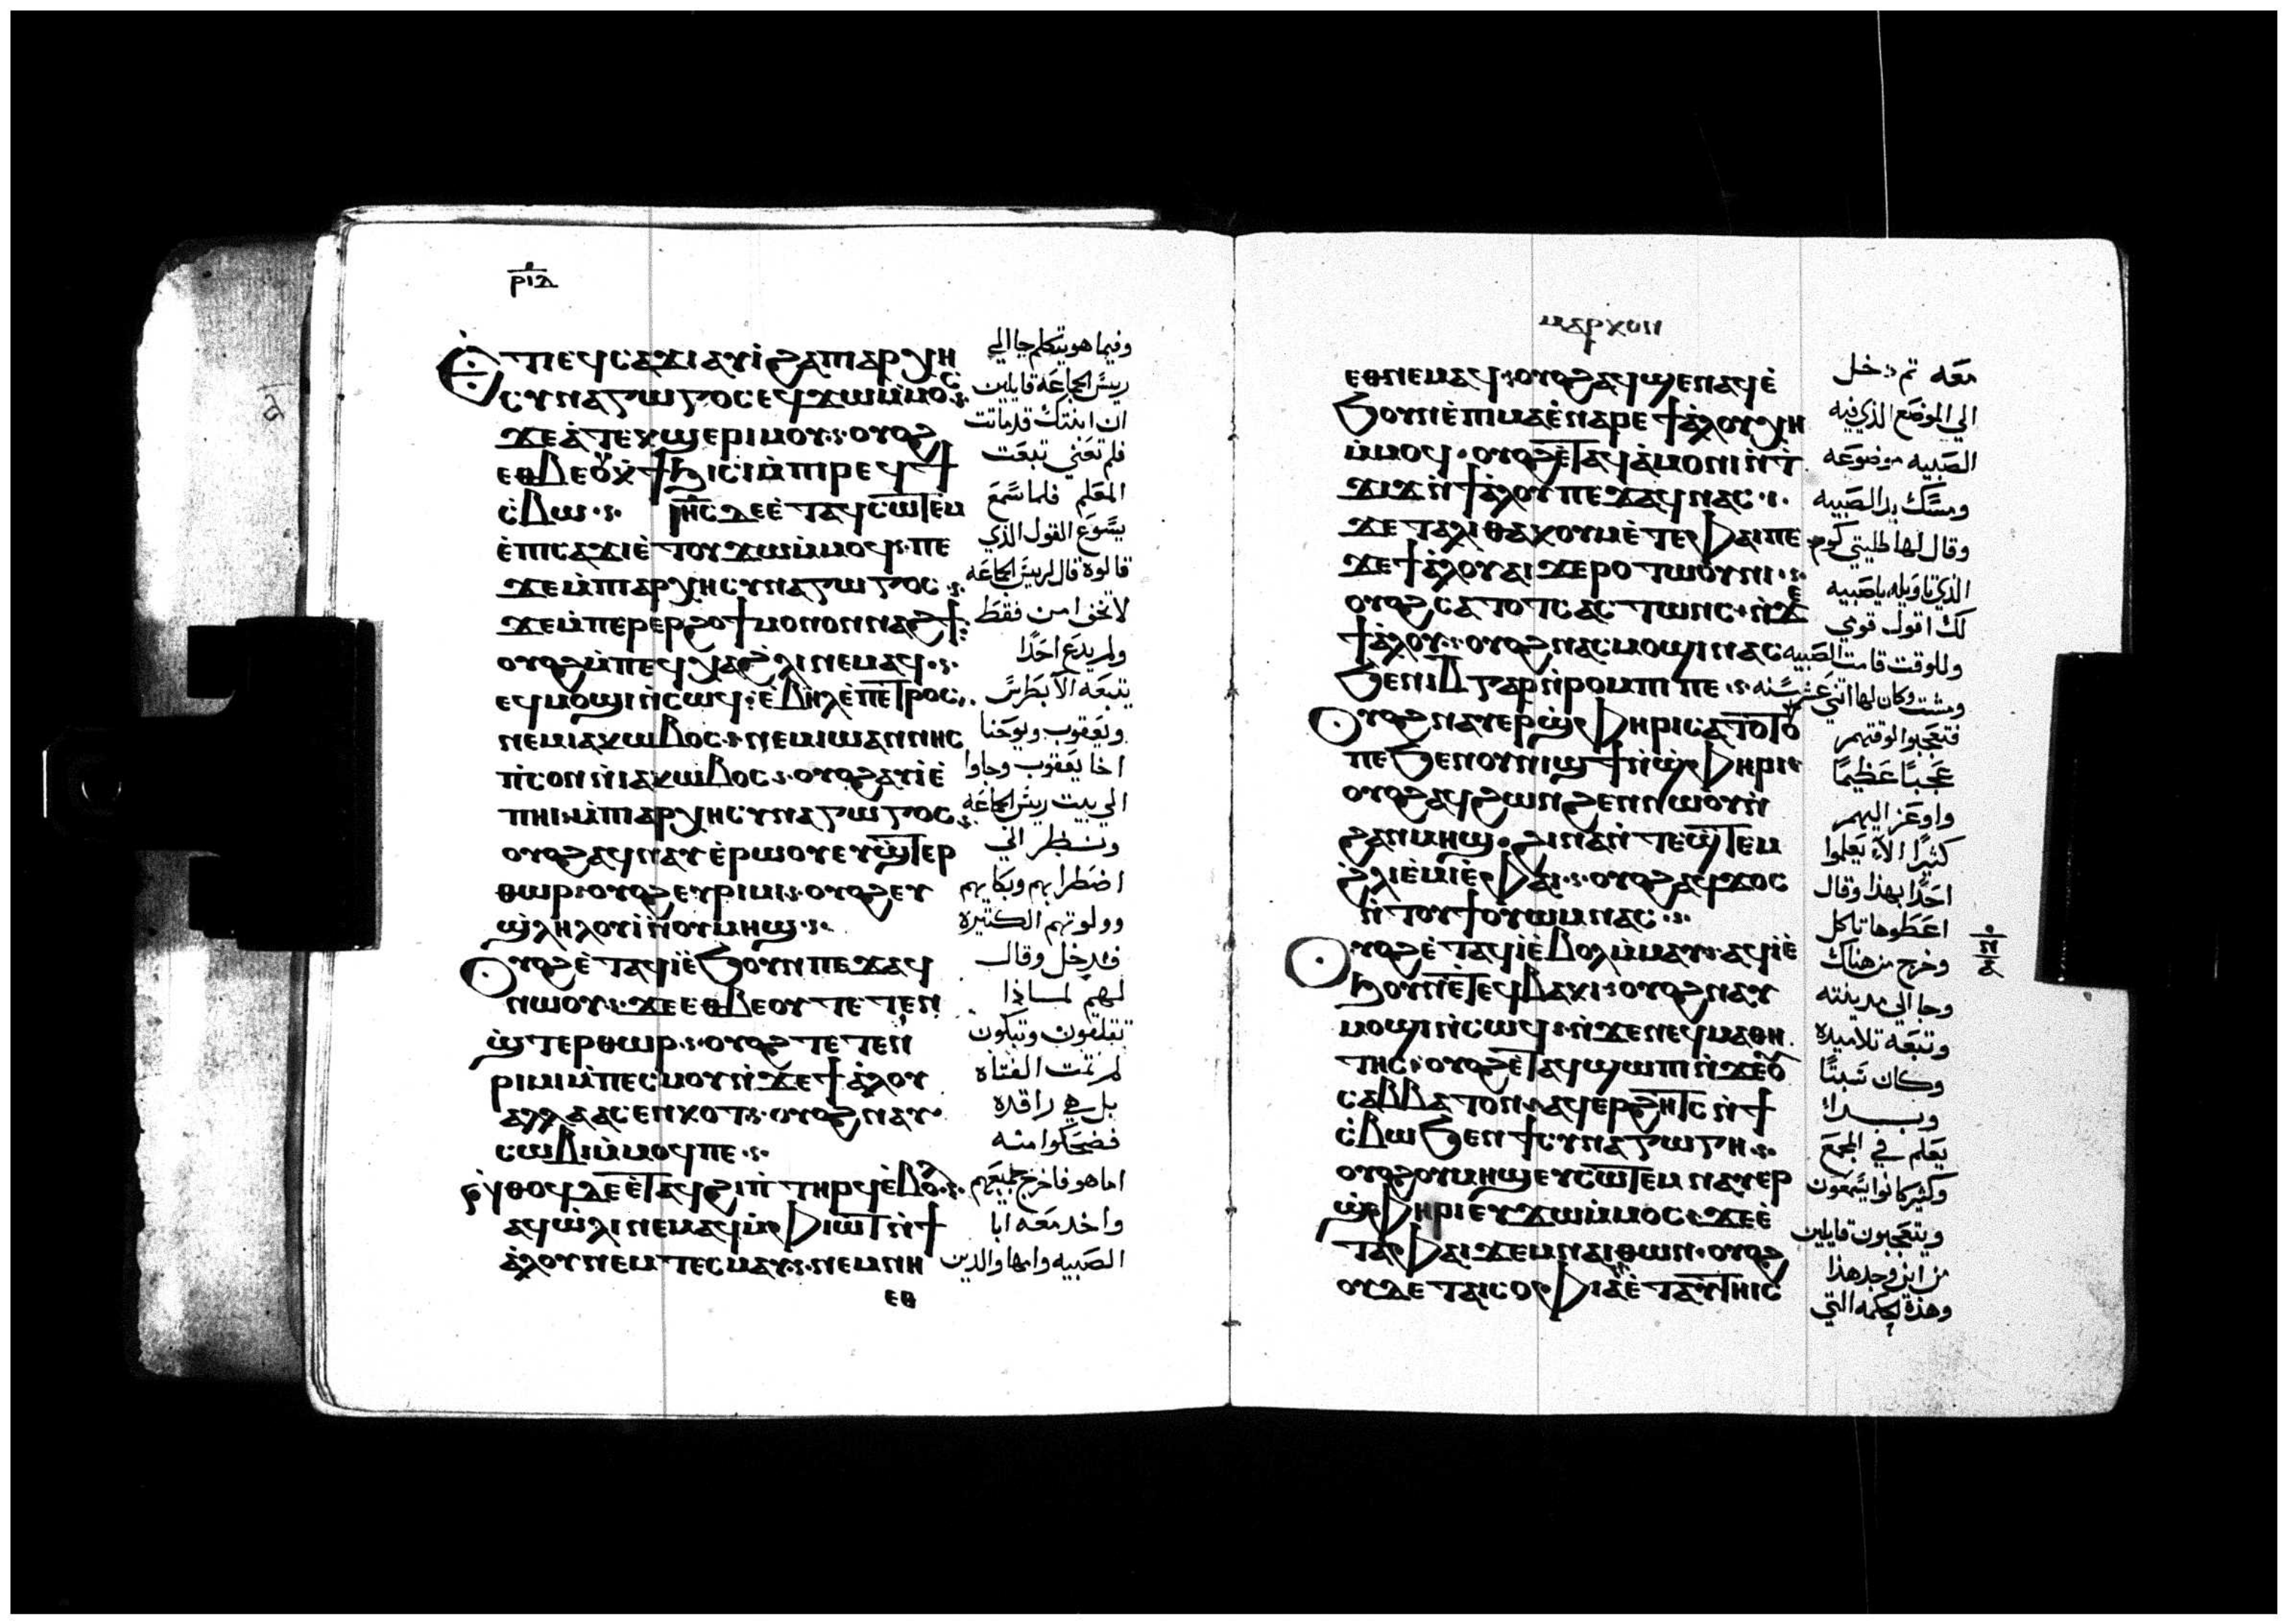 ⲣⲓⲇ
ⲉⲧⲓ ⲉϥⲥⲁϫⲓ ⲁⲩⲓ̀ ϩⲁ ⲡⲁⲣⲭⲏ
ⲥⲩⲛⲁⲅⲱⲅⲟⲥ ⲉϥϫⲱ ⲙ̀ⲙⲟⲥ
ϫⲉ ⲁ̀ ⲧⲉⲕϣⲉⲣⲓ ⲙⲟⲩ ⲟⲩⲟϩ
ⲉⲑⲃⲉⲟⲩ ⲭ̀ϯϧⲓⲥⲓ ⲙ̀ⲡⲓⲣⲉϥϯ
ⲥ̀ⲃⲱ ⲓⲏⲥ ⲇⲉ ⲉ̀ⲧⲁϥⲥⲱⲧⲉⲙ
ⲉ̀ⲡⲓⲥⲁϫⲓ ⲉ̀ⲧⲟⲩϫⲱ ⲙ̀ⲙⲟϥ ⲡⲉ
ϫⲉ ⲙ̀ⲡⲁⲣⲭⲏⲥⲩⲛⲁⲅⲱⲅⲟⲥ
ϫⲉ ⲙ̀ⲡⲉⲣⲉⲣϩⲟϯ ⲙⲟⲛⲟⲛ ⲛⲁϩϯ
ⲟⲩⲟϩ ⲙ̀ⲡⲉϥⲭⲁ ϩ̀ⲗⲓ ⲛⲉⲙⲁϥ
ⲉϥⲙⲟϣⲓ ⲛ̀ⲥⲱϥ ⲉ̀ⲃⲏⲗ ⲉ̀ⲡⲉⲧⲣⲟⲥ
ⲛⲉⲙ ⲓⲁⲕⲱⲃⲟⲥ ⲛⲉⲙ ⲓⲱⲁⲛⲛⲏⲥ
ⲡ̀ⲥⲟⲛ ⲛ̀ⲓⲁⲕⲱⲃⲟⲥ ⲟⲩⲟϩ ⲁⲩⲓ̀ ⲉ̀
ⲡⲏⲓ ⲙ̀ⲡⲁⲣⲭⲏⲥⲩⲛⲁⲅⲱⲅⲟⲥ
ⲟⲩⲟϩ ⲁϥⲛⲁⲩ ⲉ̀ⲣⲱⲟⲩ ⲉⲩϣ̀ⲧⲉⲣ
ⲑⲱⲣ ⲟⲩⲟϩ ⲉⲩⲣⲓⲙⲓ ⲟⲩⲟϩ ⲉⲩ
ϣ̀ⲗⲏⲗⲟⲩⲓ̀ ⲛ̀ⲟⲩⲙⲏϣ
ⲟⲩⲟϩ ⲉ̀ⲧⲁϥⲓ̀ ⲉ̀ϧⲟⲩⲛ ⲡⲉϫⲁϥ
ⲛⲱⲟⲩ ϫⲉ ⲉⲑⲃⲉⲟⲩ ⲧⲉⲧⲉⲛ
ϣ̀ⲧⲉⲣⲑⲱⲣ ⲟⲩⲟϩ ⲧⲉⲧⲉⲛ
ⲣⲓⲙⲓ ⲙ̀ⲡⲉⲥⲙⲟⲩ ⲛ̀ϫⲉ ϯⲁ̀ⲗⲟⲩ
ⲁⲗⲗⲁ ⲁⲥⲉⲛⲕⲟⲧ ⲟⲩⲟϩ ⲛⲁⲩ
ⲥⲱⲃⲓ ⲙ̀ⲙⲟϥ ⲡⲉ
ⲛ̀ⲑⲟϥ ⲇⲉ ⲉ̀ⲧⲁϥϩⲓⲡ̀ⲧⲏⲣϥ ⲉ̀ⲃⲟⲗ
ⲁϥⲱ̀ⲗⲓ ⲛⲉⲙⲁϥ ⲙ̀ⲫⲓⲱⲧ ⲛ̀ϯ
ⲁ̀ⲗⲟⲩ ⲛⲉⲙ ⲧⲉⲥⲙⲁⲩ ⲛⲉⲙ ⲛⲏ
ⲉⲑ
وفيما هو يتكلم جا الي
ريس الجماعه قايلين
ان ابنتك قد ماتت
فلم تعني تبعت
المعلم فلما سمع
يسوع القول الذي
قالوه قال لريس الجماعه
لا تخف امن فقط
ولم يدع احدًا
يتبعه الا بطرس
ويعقوب ويوحنا
اخا يعقوب وجاوا
الي بيت ريس الجماعه
ونـظر الي
اضطرابهم وبكايهم
وولولتهم الكثيره
فدخل وقال
لهم لماذا
تقلقون وتبكون
لم تمت الفتاه
بل هي راقده
فضحكوا منه
اما هو فاخرج جميعهم
واخد معه ابا
الصبيه وامها والدين
ⲙⲁⲣⲕⲟⲛ
ⲉⲑⲛⲉⲙⲁϥ ⲟⲩⲟϩ ⲁϥϣⲉⲛⲁϥ ⲉ̀
ϧⲟⲩⲛ ⲉ̀ⲡⲓⲙⲁ ⲉ̀ⲛⲁⲣⲉ ϯⲁ̀ⲗⲟⲩ ⲭⲏ
ⲙ̀ⲙⲟϥ ⲟⲩⲟϩ ⲉ̀ⲧⲁϥⲁ̀ⲙⲟⲛⲓ ⲛ̀ⲧ
ϫⲓϫ ⲛ̀ϯⲁ̀ⲗⲟⲩ ⲡⲉϫⲁϥ ⲛⲁⲥ
ϫⲉ ⲧⲁⲗⲓⲑⲁ ⲕⲟⲩⲙ ⲉ̀ⲧⲉ ⲫⲁⲓ ⲡⲉ
ϫⲉ ϯⲁ̀ⲗⲟⲩ ⲁⲓϫⲉⲣⲟ ⲧⲱⲟⲩⲛⲓ
ⲟⲩⲟϩ ⲥⲁⲧⲟⲧⲥ ⲁⲥⲧⲱⲛⲥ ⲛ̀ϫⲉ
ϯⲁ̀ⲗⲟⲩ ⲟⲩⲟϩ ⲛⲁⲥⲙⲟϣⲓ ⲛⲁⲥ
ϧⲉⲛ ⲓⲃ ⲅⲁⲣ ⲛ̀ⲣⲟⲙⲡⲓ ⲡⲉ
ⲟⲩⲟϩ ⲛⲁⲩⲉⲣϣ̀ⲫⲏⲣⲓ ⲥⲁⲧⲟⲧⲟⲩ
ⲡⲉ ϧⲉⲛ ⲟⲩⲛⲓϣϯ ⲛ̀ϣ̀ⲫⲏⲣⲓ
ⲟⲩⲟϩ ⲁϥϩⲱⲛϩⲉⲛ ⲛⲱⲟⲩ ⲛ̀
ϩⲁⲛⲙⲏϣ ϩⲓⲛⲁ ⲛ̀ⲧⲉϣ̀ⲧⲉⲙ
ϩ̀ⲗⲓ ⲉ̀ⲙⲓ ⲉ̀ⲫⲁⲓ ⲟⲩⲟϩ ⲁϥϫⲟⲥ
ⲛ̀ⲧⲟⲩϯ ⲟⲩⲱⲙ ⲛⲁⲥ
ⲟⲩⲟϩ ⲉ̀ⲧⲁϥⲓ̀ ⲉ̀ⲃⲟⲗ ⲙ̀ⲙⲁⲩ ⲁϥⲓ̀ ⲉ̀
ϧⲟⲩⲛ ⲉ̀ⲧⲉϥⲃⲁⲕⲓ ⲟⲩⲟϩ ⲛⲁⲩ
ⲙⲟϣⲓ ⲛ̀ⲥⲱϥ ⲛ̀ϫⲉ ⲛⲉϥⲙⲁⲑⲏ
ⲧⲏⲥ ⲟⲩⲟϩ ⲉ̀ⲧⲁϥϣⲱⲡⲓ ⲛ̀ϫⲉ ⲟⲩ
ⲥⲁⲃⲃⲁⲧⲟⲛ ⲁϥⲉⲣϩⲏⲧⲥ ⲛ̀ϯ
ⲥ̀ⲃⲱ ϧⲉⲛ ϯⲥⲩⲛⲁⲅⲱⲅⲏ
ⲟⲩⲟϩ ⲟⲩⲙⲏϣ ⲉⲩⲥⲱⲧⲉⲙ ⲛⲁⲩⲉⲣ
ϣ̀ⲫⲏⲣⲓ ⲉⲩϫⲱ ⲙ̀ⲙⲟⲥ ϫⲉ ⲉ̀
ⲧⲁ ⲫⲁⲓ ϫⲉⲙ ⲛⲁⲓ ⲑⲱⲛ ⲟⲩⲟϩ
ⲟⲩⲇⲉ ⲧⲁⲓⲥⲟⲫⲓⲁ ⲉ̀ⲧⲁⲩⲧⲏⲓⲥ
معه تم دخل
الي الموضع الذي فيه
الصبيه موضوعه
ومسك يد الصبيه
وقال لها طليتي كوم
الذي تاويله ياصبيه
لك اقول قومي
وللوقت قامت الصبيه
ومشت وكان لها اتني عشر سنه
فتعجبوا لوقتهم
عجبًا عظيمًا
واوعز اليهم
كثيرًا الا يعلموا
احدًا بهذا وقال
اعطوها تاكل
وخرج من هناك
وجا الي مدينته
وتبعه تلاميذه
وكان سبتًا
وبـدا
يعلم في المجمع
وكثير كانوا يسمعون
ويتعجبون قايلين
من اين وجد هذا
وهذه الحكمه التي